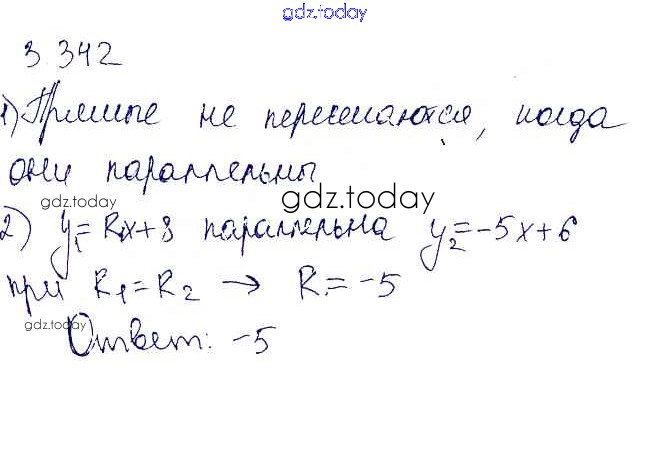 gdz.today
3.342
1) Прямые не пересекаются, когда
они параллельны
gdz.today
gdz.today
2) y₁=kx+8 параллельна y₂=-5x+6
при k₁=k₂ → k=-5
gdz.today
Ответ: -5